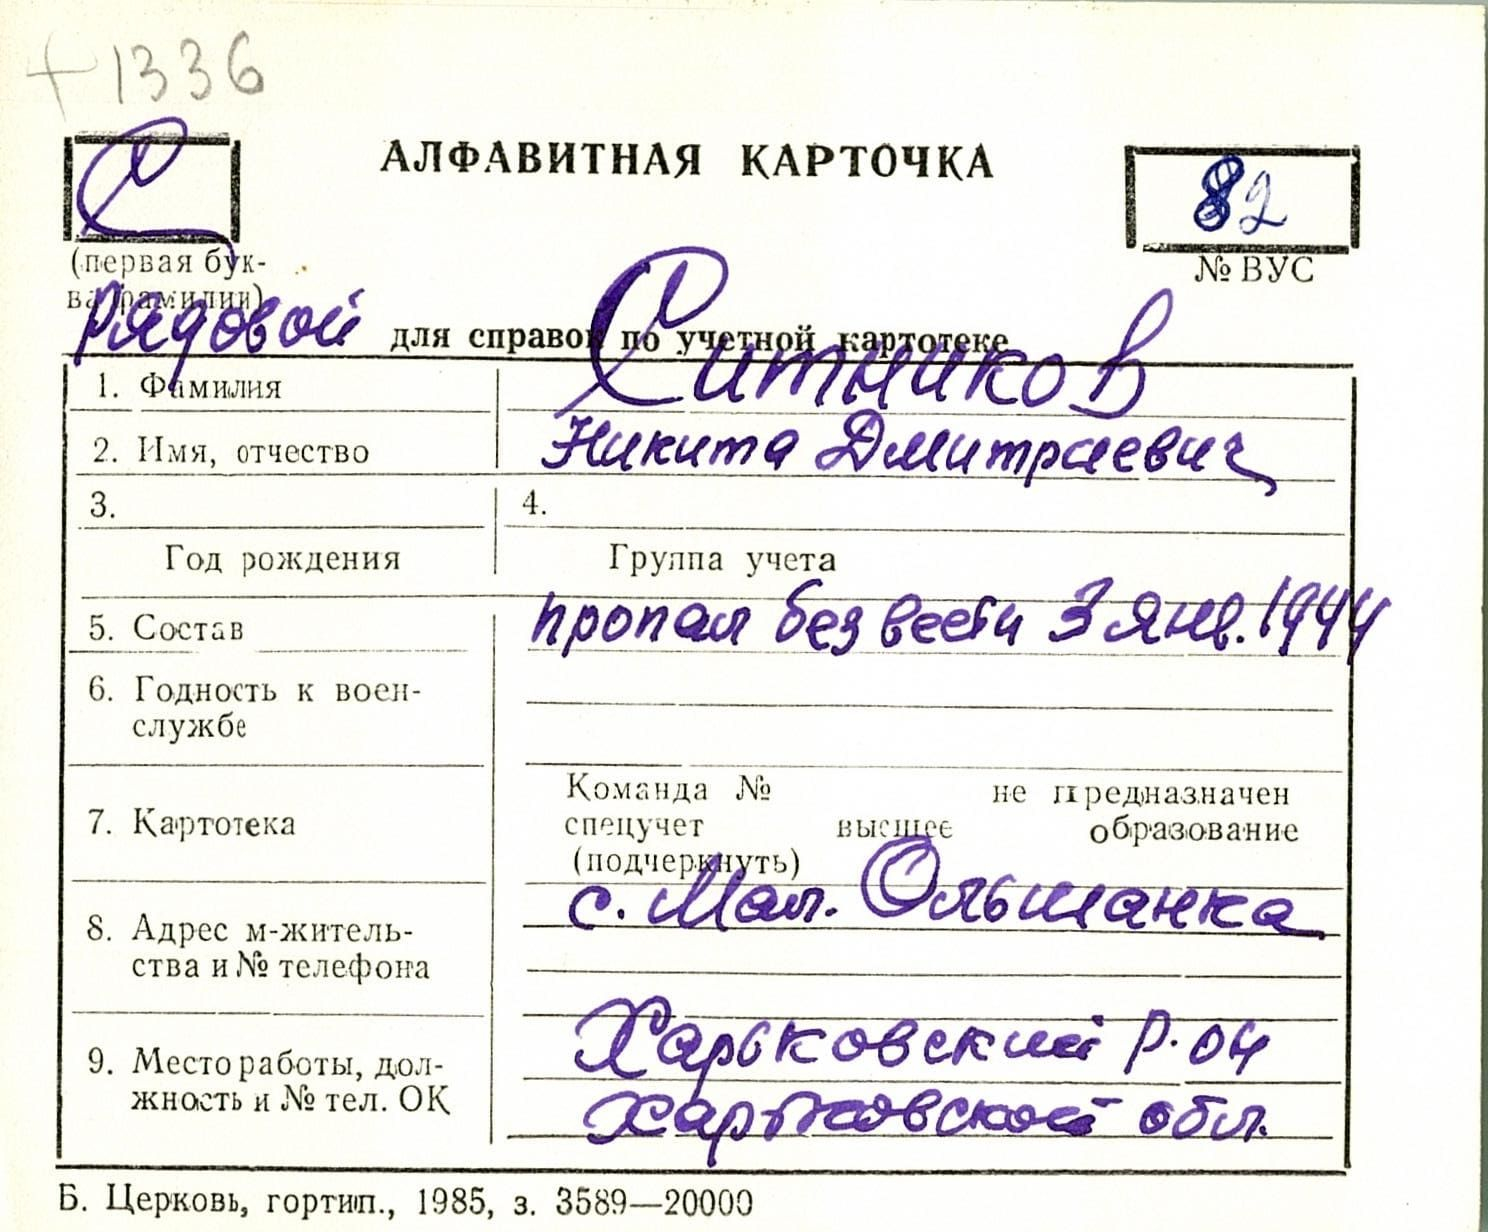 +1336
С
АЛФАВИТНАЯ КАРТОЧКА
82
(первая бук-
ва фамилии)
№ ВУС
Рядовой
для справок по учетной картотеке
1. Фамилия
Ситников
2. Имя, отчество
Никита Дмитриевич
3.
4.
Год рождения
Группа учета
5. Состав
пропал без вести 3 янв. 1944
6. Годность к воен-
службе
7. Картотека
Команда № не предназначен
спецучет высшее образование
(подчеркнуть)
с. Мал. Ольшанка
8. Адрес м-житель-
ства и № телефона
9. Место работы, дол-
жность и № тел. ОК
Харьковский р-он
Харьковской обл.
Б. Церковь, гортип., 1985, з. 3589—20000